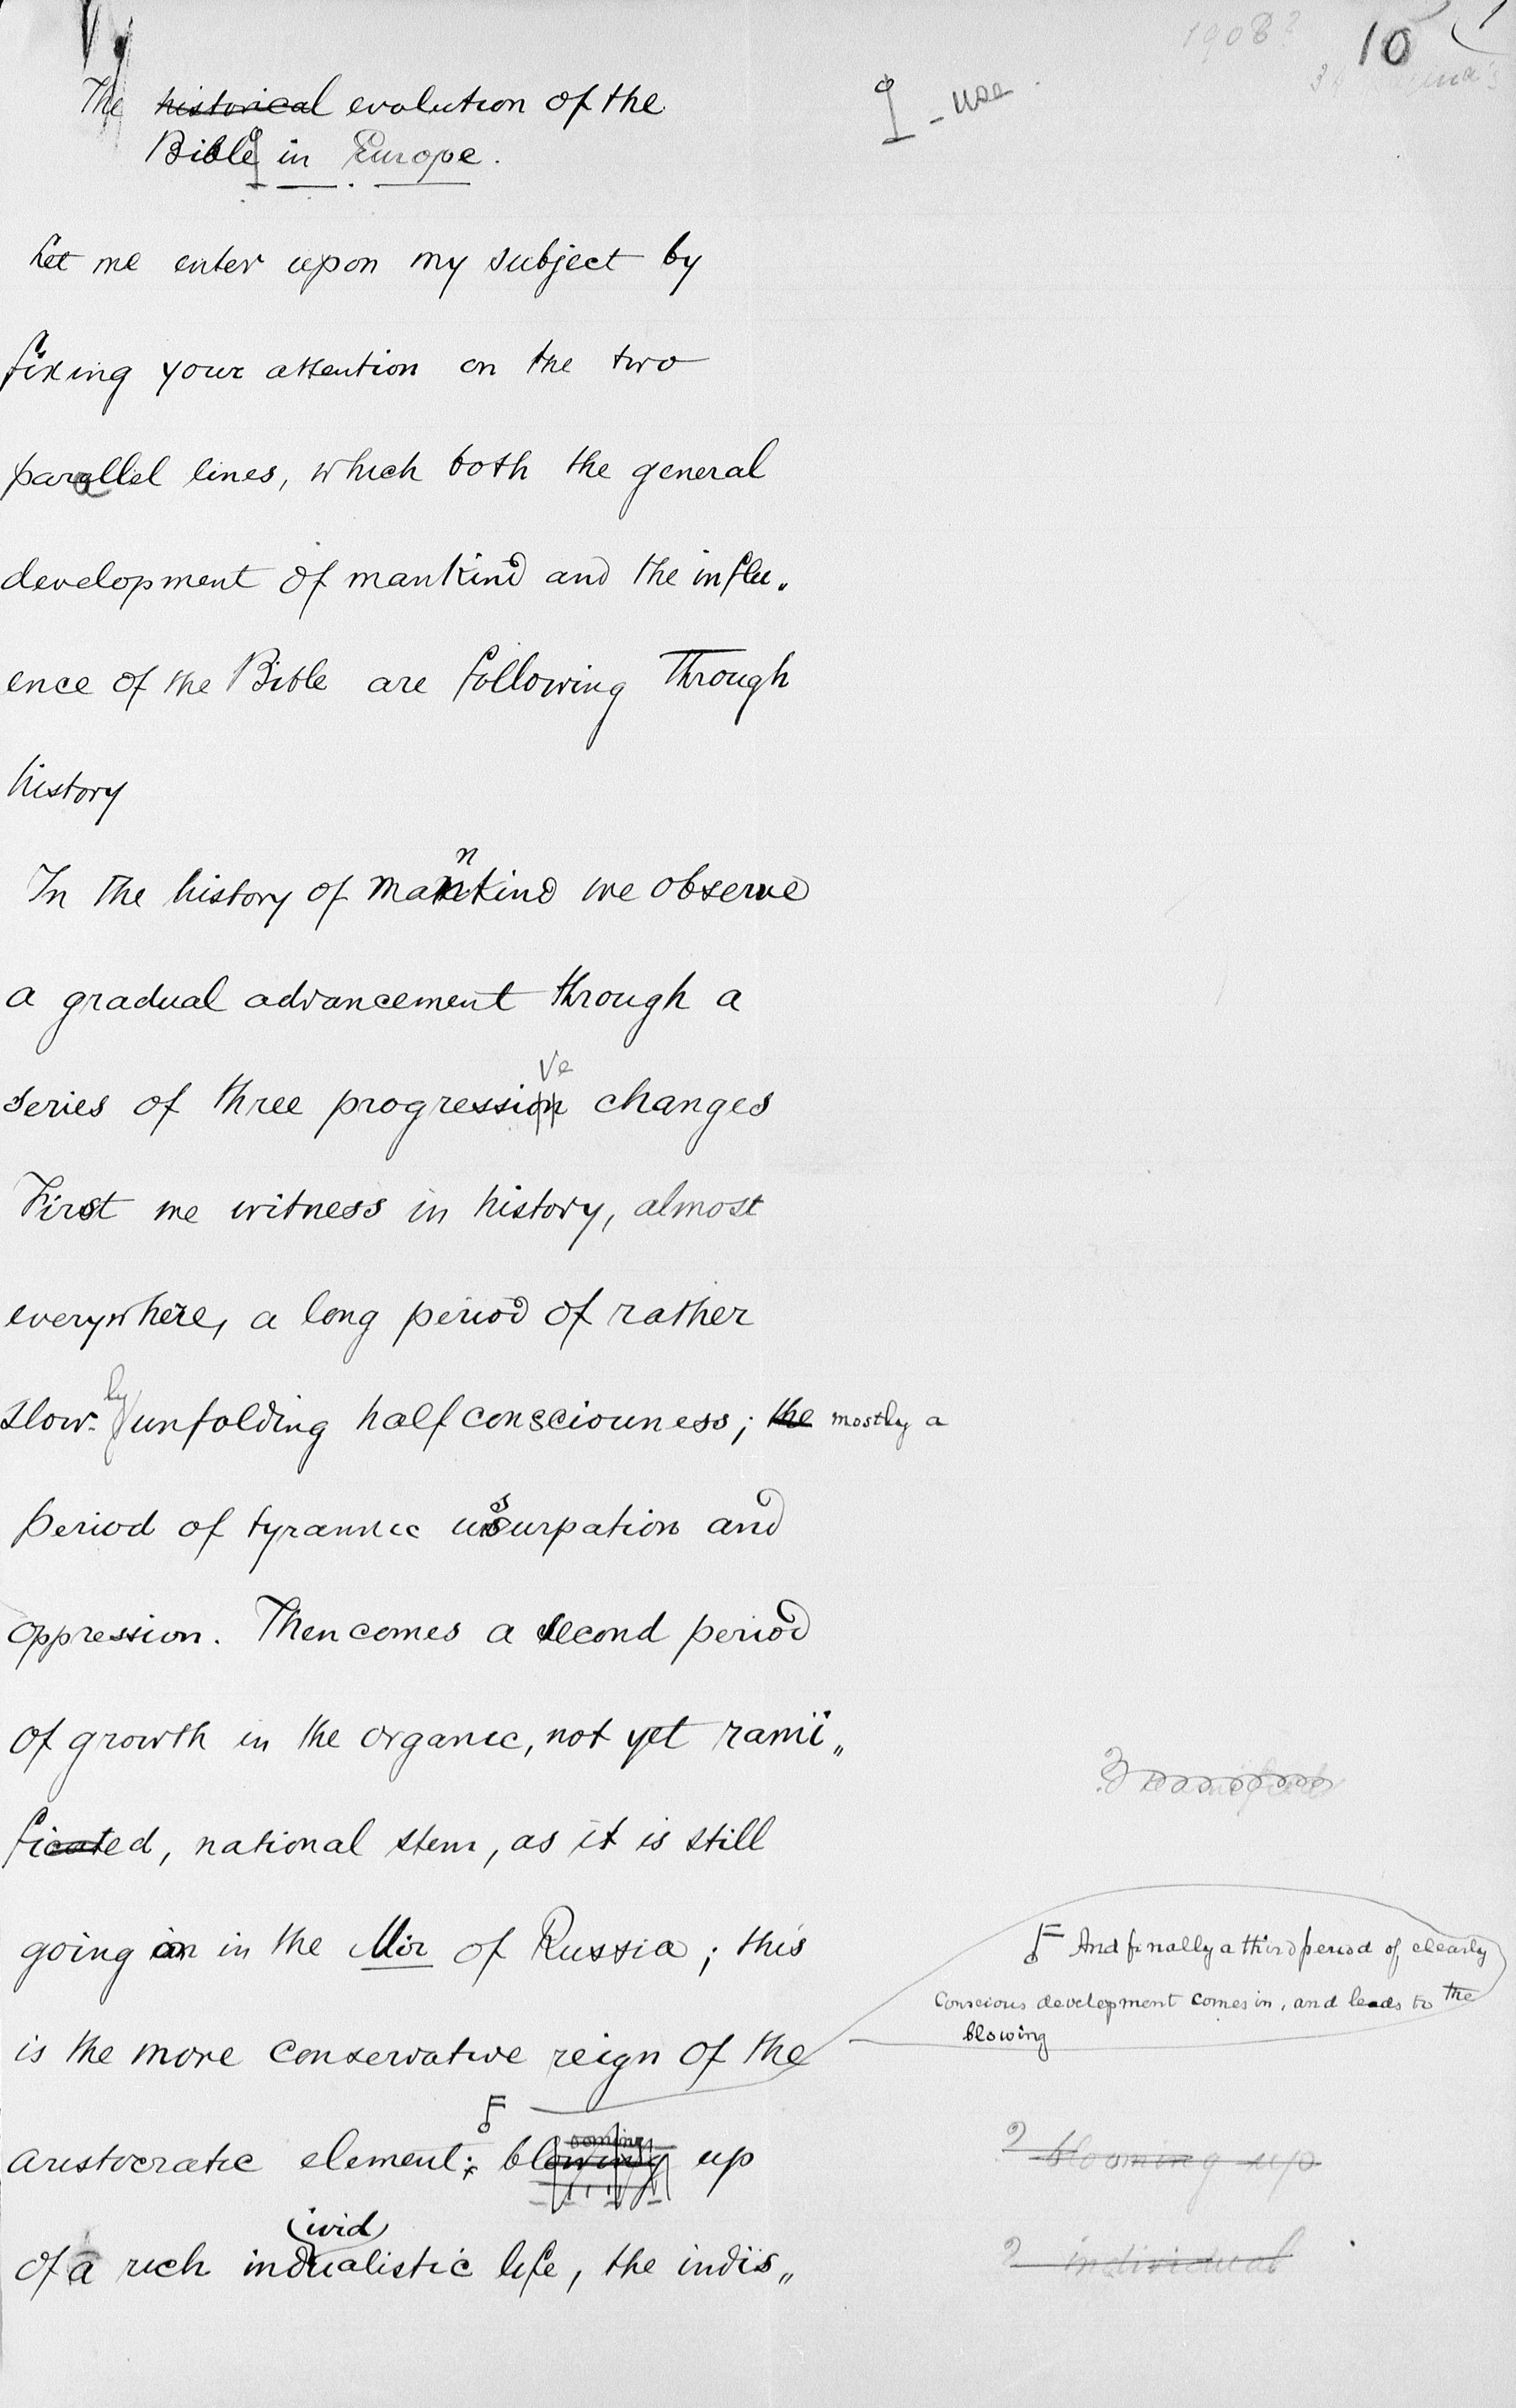 1908? 10 1
The historical evolution of the
Bible in Europe.
- use
Let me enter upon my subject by
fixing your attention on the two
parallel lines, which both the general
development of mankind and the influ„
ence of the Bible are following through
history
In the history of mankind we observe
a gradual advancement through a
series of three progressive changes
First we witness in history, almost
everywhere, a long period of rather
slow-ly unfolding half consciouness; the mostly a
period of tyrannic usurpation and
oppression. Then comes a second period
of growth in the organic, not yet rami„
ficated, national stem, as it is still
going on in the Mir of Russia; this
is the more conservative reign of the
aristocratic element; blowing up
ooming
And finally a third period of clearly
conscious development comes in, and leads to the
blowing
? blooming up
of a rich individualistic life, the indis„
? individual